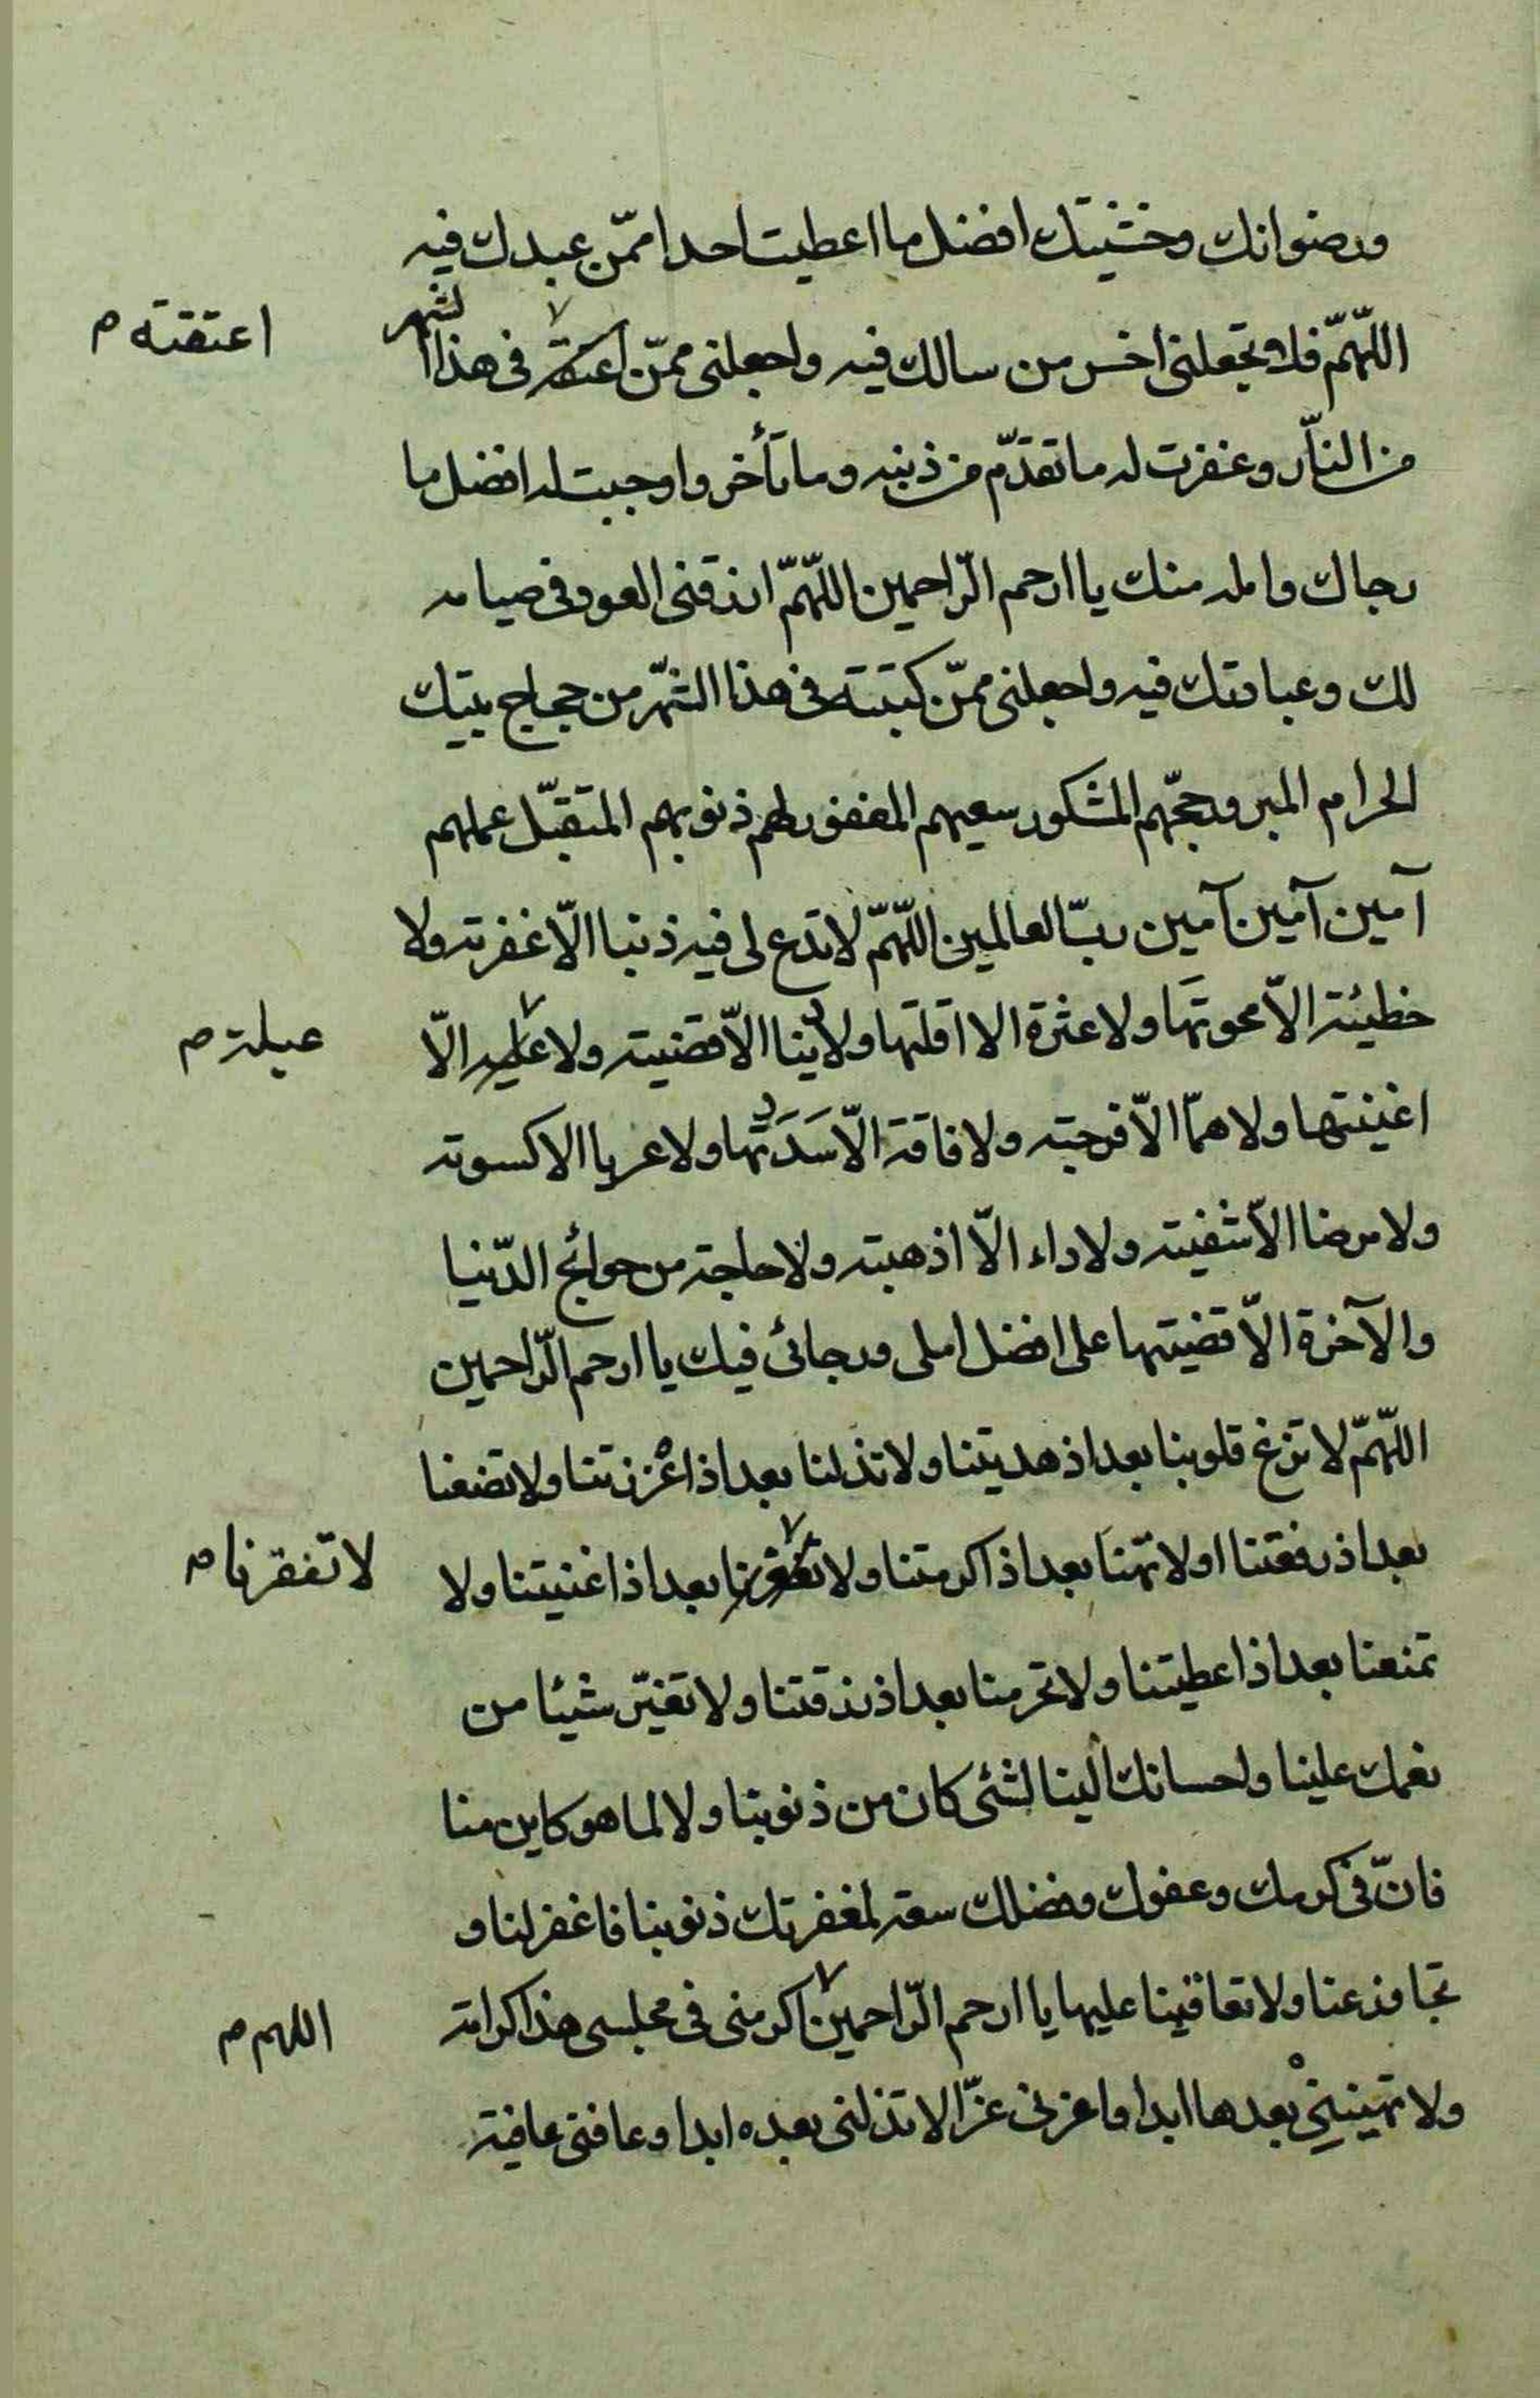 ورضوانك وخشيتك افضل ما اعطيت احدا ممّن عبدك فيه
اللّهمّ فلا تجعلنى اخسر من سالك فيه واجعلنى ممّن اعتقته فى هذا الشهر
اعتقته م
من النّار وغفرت له ما تقدّم من ذنبه وما تأخر واوجبت له افضل ما
رجاك وامله منك يا ارحم الرّاحمين اللّهمّ ارزقنى العود فى صيامه
لك وعبادتك فيه واجعلنى ممّن كتبته فى هذا الشّهر من حجاج بيتك
الحرام المبرور حجّهم المشكور سعيهم المغفور لهم ذنوبهم المتقبّل عملهم
آمين آمين آمين ربّ العالمين اللّهمّ لا تدع لى فيه ذنبا الّا غفرته ولا
خطيئة الّا محوتها ولا عثرة الا اقلتها ولا دينا الّا قضيته ولا عليه الّا
عيلة م
اغنيتها ولا همّا الّا فرجته ولا فاقة الّا سَدَدتها ولا عريا الا كسوته
ولا مرضا الّا شفيته ولا داء الّا اذهبته ولا حاجة من حوائج الدّنيا
والآخرة الّا قضيتها على افضل املى ورجائى فيك يا ارحم الرّاحمين
اللّهمّ لا تزغ قلوبنا بعد اذ هديتنا ولا تذلنا بعد اذ اعْززتنا ولا تضعنا
بعد اذ رفعتنا او لا تهنا بعد اذ اكرمتنا ولا بعد اذ اغنيتنا ولا
لا تفقرنا م
تمنعنا بعد اذ اعطيتنا ولا تحرمنا بعد اذ رزقتنا ولا تغيّر شيئا من
نعمك علينا واحسانك الينا لشئى كان من ذنوبنا ولا لما هو كاين منا
فانّ فى كرمك وعفوك وفضلك سعة لمغفرتك ذنوبنا فاغفر لنا و
تجاوز عنا ولا تعاقبنا عليها يا ارحم الرّاحمين اكرمنى فى مجلسى هذا كرامة
اللهم م
ولا تهينيْي بعدها ابدا واعزنى عزّا لا تذلنى بعده ابدا وعافنى عافية